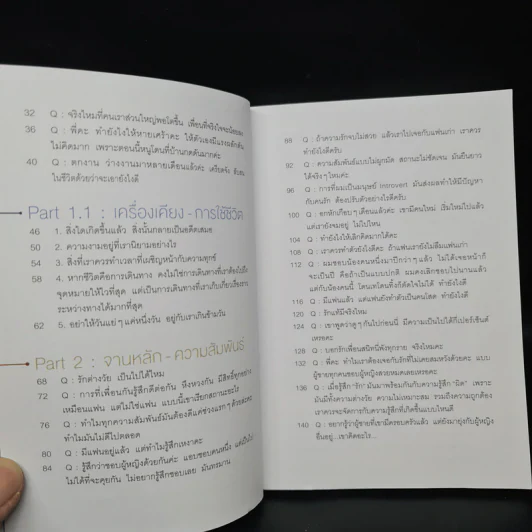 32 Q : จริงไหมที่คนเราส่วนใหญ่พอโตขึ้น เพื่อนที่จริงใจจะน้อยลง
36 Q : พี่คะ ทำยังไงให้หายเศร้าคะ ให้ตัวเองมีแรงผลักดัน
ไม่คิดมาก เพราะตอนนี้หนูโดนที่บ้านกดดันมากค่ะ
40 Q : ตกงาน ว่างงานมาหลายเดือนแล้วค่ะ เครียดจัง
ในชีวิตด้วยว่าจะเอายังไงดี
Part 1.1 : เครื่องเคียง - การใช้ชีวิต
46 1. สิ่งใดเกิดขึ้นแล้ว สิ่งนั้นกลายเป็นอดีตเสมอ
50 2. ความงามอยู่ที่เรานิยามอย่างไร
54 3. สิ่งที่เราควรทำเวลาที่เผชิญหน้ากับความทุกข์
58 4. หากชีวิตคือการเดินทาง คงไม่ใช่การเดินทางที่เราต้องไปถึง
จุดหมายให้ไวที่สุด แต่เป็นการเดินทางที่เราเก็บเกี่ยวเรื่องราว
ระหว่างทางได้มากที่สุด
62 5. อย่าให้วันแย่ๆ แค่หนึ่งวัน อยู่กับเราเกินข้ามวัน
Part 2 : จานหลัก - ความสัมพันธ์
68 Q : รักต่างวัย เป็นไปได้ไหม
72 Q : การที่เพื่อนกันรู้สึกดีต่อกัน จึงหวงกัน มีสิทธิ์ทุกอย่าง
เหมือนแฟน แต่ไม่ใช่แฟน แบบนี้เขาเรียกสถานะอะไร
76 Q : ทำไมทุกความสัมพันธ์มันต้องดีแค่ช่วงแรกๆ ด้วยล่ะคะ
ทำไมมันไม่ดีไปตลอด
80 Q : มีแฟนอยู่แล้ว แต่ทำไมรู้สึกเหงาคะ
84 Q : รู้สึกว่าชอบผู้หญิงด้วยกันค่ะ แอบชอบคนหนึ่ง
ไม่ได้ที่จะคุยกัน ไม่อยากรู้สึกชอบเลย มันทรมาน
88 Q : ถ้าความรักจบไม่สวย แล้วเราไปเจอกับแฟนเก่า เราควร
ทำยังไงดีครับ
92 Q : ความสัมพันธ์แบบไม่ผูกมัด สถานะไม่ชัดเจน มันยืนยาว
ได้จริงๆ ไหมคะ
96 Q : การที่ผมเป็นมนุษย์ introvert มันส่งผลทำให้มีปัญหา
กับคนรัก ต้องปรับตัวอย่างไรดีครับ
100 Q : อกหักเกือบๆ เดือนแล้วค่ะ เขามีคนใหม่ เริ่มใหม่ไปแล้ว
แต่เรายังจมอยู่ ไม่ไปไหน
104 Q : ทำยังไงให้เลิกคิดมากได้คะ
108 Q : เราควรทำตัวยังไงดีคะ ถ้าแฟนเรายังไม่ลืมแฟนเก่า
112 Q : ผมชอบน้องคนหนึ่งมาปีกว่าๆ แล้ว ไม่ได้เจอหน้าก็
จะเป็นปี คือถ้าเป็นแบบปกติ ผมคงเลิกชอบไปนานแล้ว
แต่กับน้องคนนี้ โดนเทไหนทิ้งก็ตัดใจไม่ได้ ทำยังไงดี
116 Q : มีแฟนแล้ว แต่แฟนยังทำตัวเป็นคนโสด ทำยังไงดี
120 Q : รักแท้มีจริงไหม
124 Q : เขาพูดว่าดูๆ กันไปก่อนนี่ มีความเป็นไปได้กี่เปอร์เซ็นต์
เหรอคะ
128 Q : บอกรักเพื่อนสนิทมีพังทุกราย จริงไหมคะ
132 Q : พี่คะ ทำไมเราต้องเจอกับรักที่ไม่เคยสมหวังด้วยคะ แบบ
ผู้ชายทุกคนชอบผู้หญิงสวยหมดเลยเหรอคะ
136 Q : เมื่อรู้สึก "รัก" มันมาพร้อมกันกับความรู้สึก "ผิด" เพราะ
มันมีทั้งความต่างวัย ความไม่เหมาะสม รวมถึงความถูกต้อง
เราควรจะจัดการกับความรู้สึกที่เกิดขึ้นแบบไหนดี
140 Q : อยากรู้ว่าผู้ชายที่เขามีครอบครัวแล้ว แต่ยังมายุ่งกับผู้หญิง
อื่นอยู่ ..เขาคิดอะไร...